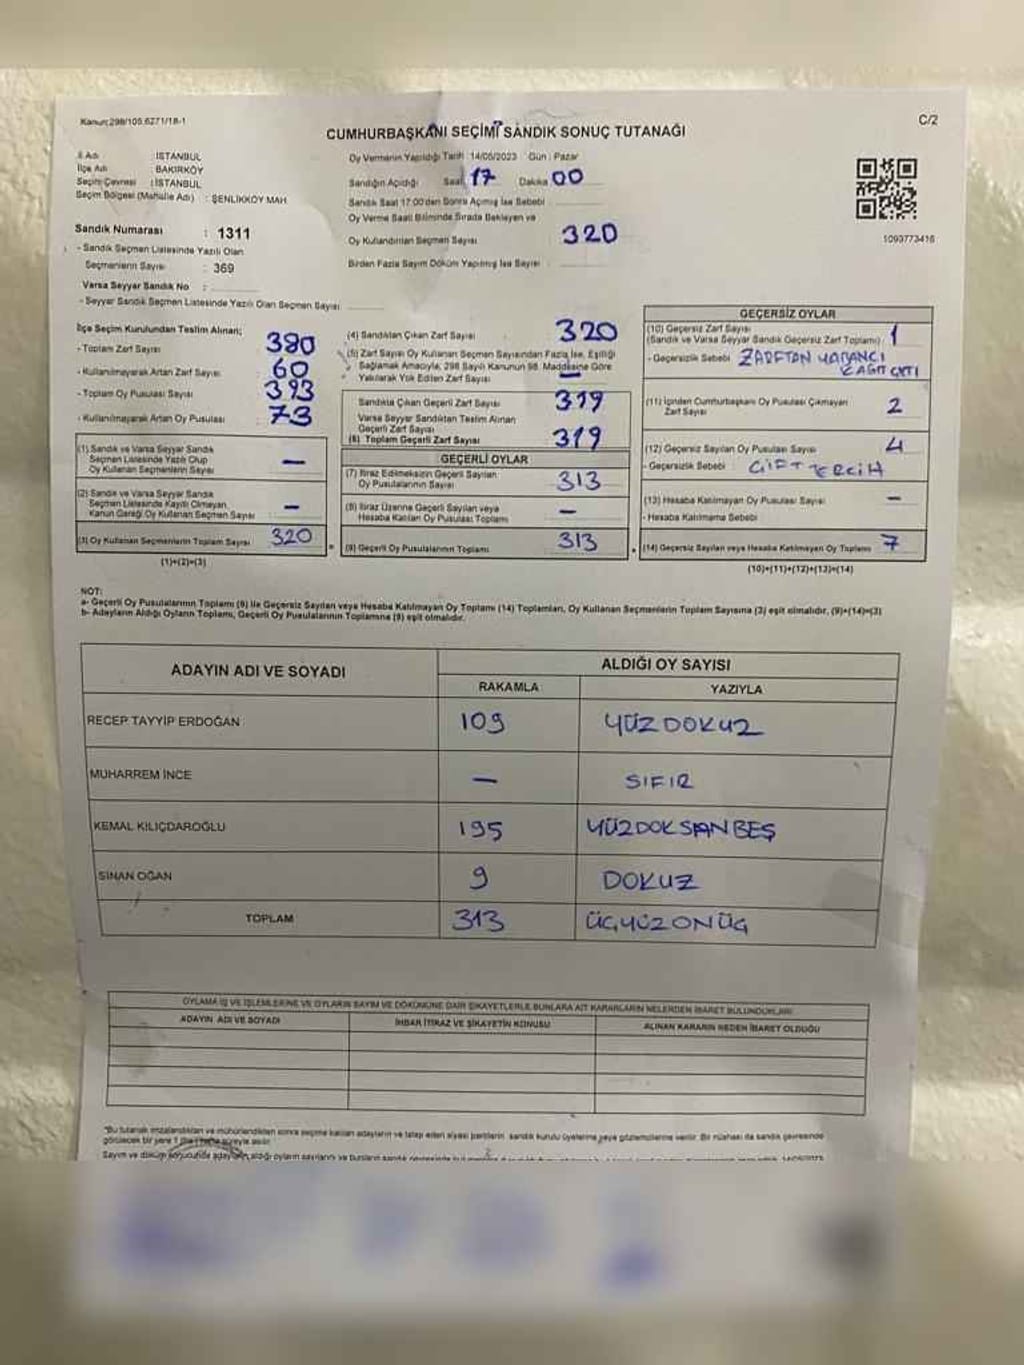 Kanun:298/105.6271/18-1
C/2
CUMHURBAŞKANI SEÇİMİ SANDIK SONUÇ TUTANAĞI
İl Adı : İSTANBUL
İlçe Adı : BAKIRKÖY
Seçim Çevresi : İSTANBUL
Seçim Bölgesi (Mahalle Adı) : ŞENLİKKÖY MAH.
Sandık Numarası : 1311
- Sandık Seçmen Listesinde Yazılı Olan
Seçmenlerin Sayısı : 369
Varsa Seyyar Sandık No :
- Seyyar Sandık Seçmen Listesinde Yazılı Olan Seçmen Sayısı
Oy Vermenin Yapıldığı Tarih 14/05/2023 Gün : Pazar
Sandığın Açıldığı Saat 17 Dakika 00
Sandık Saat 17:00'den Sonra Açılmış İse Sebebi
Oy Verme Saati Bitiminde Sırada Bekleyen ve
Oy Kullandırılan Seçmen Sayısı 320
Birden Fazla Sayım Döküm Yapılmış İse Sayısı :
1093773416
İlçe Seçim Kurulundan Teslim Alınan;
- Toplam Zarf Sayısı 380
- Kullanılmayarak Artan Zarf Sayısı 60
- Toplam Oy Pusulası Sayısı 393
- Kullanılmayarak Artan Oy Pusulası 73
(1) Sandık ve Varsa Seyyar Sandık
Seçmen Listesinde Yazılı Olup
Oy Kullanan Seçmenlerin Sayısı —
(2) Sandık ve Varsa Seyyar Sandık
Seçmen Listesinde Kayıtlı Olmayan,
Kanun Gereği Oy Kullanan Seçmen Sayısı —
(3) Oy Kullanan Seçmenlerin Toplam Sayısı 320
(1)+(2)=(3)
(4) Sandıktan Çıkan Zarf Sayısı 320
(5) Zarf Sayısı Oy Kullanan Seçmen Sayısından Fazla İse, Eşitliği
Sağlamak Amacıyla, 298 Sayılı Kanunun 98. Maddesine Göre
Yakılarak Yok Edilen Zarf Sayısı —
Sandıkta Çıkan Geçerli Zarf Sayısı 319
Varsa Seyyar Sandıktan Teslim Alınan
Geçerli Zarf Sayısı
(6) Toplam Geçerli Zarf Sayısı 319
GEÇERLİ OYLAR
(7) İtiraz Edilmeksizin Geçerli Sayılan
Oy Pusulalarının Sayısı 313
(8) İtiraz Üzerine Geçerli Sayılan veya
Hesaba Katılan Oy Pusulası Toplamı —
(9) Geçerli Oy Pusulalarının Toplamı 313
GEÇERSİZ OYLAR
(10) Geçersiz Zarf Sayısı
(Sandık ve Varsa Seyyar Sandık Geçersiz Zarf Toplamı) 1
- Geçersizlik Sebebi ZARFTAN YABANCI
KAĞIT ÇIKTI
(11) İçinden Cumhurbaşkanı Oy Pusulası Çıkmayan
Zarf Sayısı 2
(12) Geçersiz Sayılan Oy Pusulası Sayısı 4
- Geçersizlik Sebebi : ÇİFT TERCİH
(13) Hesaba Katılmayan Oy Pusulası Sayısı —
- Hesaba Katılmama Sebebi
(14) Geçersiz Sayılan veya Hesaba Katılmayan Oy Toplamı 7
(10)+(11)+(12)+(13)=(14)
NOT:
a- Geçerli Oy Pusulalarının Toplamı (9) ile Geçersiz Sayılan veya Hesaba Katılmayan Oy Toplamı (14) Toplamları, Oy Kullanan Seçmenlerin Toplam Sayısına (3) eşit olmalıdır. (9)+(14)=(3)
b- Adayların Aldığı Oyların Toplamı, Geçerli Oy Pusulalarının Toplamına (9) eşit olmalıdır.
ADAYIN ADI VE SOYADI
ALDIĞI OY SAYISI
RAKAMLA YAZIYLA
RECEP TAYYİP ERDOĞAN 109 YÜZDOKUZ
MUHARREM İNCE — SIFIR
KEMAL KILIÇDAROĞLU 195 YÜZDOKSANBEŞ
SİNAN OĞAN 9 DOKUZ
TOPLAM 313 ÜÇYÜZONÜÇ
OYLAMA İŞ VE İŞLEMLERİNE VE OYLARIN SAYIM VE DÖKÜMÜNE DAİR ŞİKAYETLERLE BUNLARA AİT KARARLARIN NELERDEN İBARET BULUNDUKLARI
ADAYIN ADI VE SOYADI İHBAR İTİRAZ VE ŞİKAYETİN KONUSU ALINAN KARARIN NEDEN İBARET OLDUĞU
*Bu tutanak imzalandıktan ve mühürlendikten sonra seçime katılan adayların ve talep eden siyasi partilerin sandık kurulu üyelerine veya gözlemcilerine verilir. Bir nüshası da sandık çevresinde
görülecek bir yere 1 hafta süreyle asılır.
Sayım ve döküm sonucunda adayların aldığı oyların sayılarını ve bunların